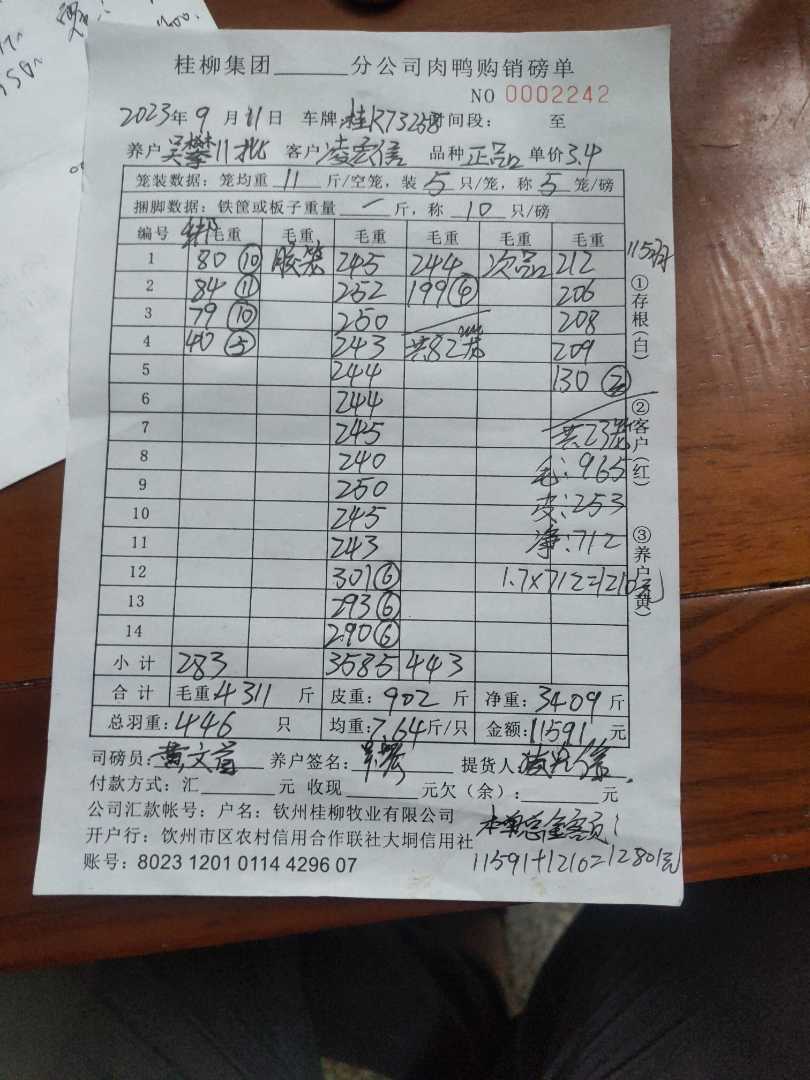 桂柳集团______分公司肉鸭购销磅单
NO 0002242
2023年9月11日 车牌:桂R73258时间段: 至
养户吴攀11批 客户凌宏信 品种正品 单价3.4
笼装数据:笼均重 11 斤/空笼,装 5 只/笼,称 5 笼/磅
捆脚数据:铁篚或板子重量 一 斤,称 10 只/磅
编号 毛重 毛重 毛重 毛重 毛重 毛重
1 80⑩ 胶笼 245 244 次品 212 115羽
2 84⑪ 252 199④ 206
3 79⑩ 250 208
4 40⑤ 243 共82笼 209
5 244 130②
6 244
7 245 共23笼
8 240 毛:965
9 250 皮:253
10 245 净:712
11 243
12 301⑥ 1.7×712=1210元
13 293⑥
14 290⑥
小计 283 3585 443
合计 毛重4311斤 皮重:902斤 净重:3409斤
总羽重:446 只 均重:7.64斤/只 金额:11591元
司磅员:黄文首 养户签名: 提货人
付款方式:汇______元 收现______元欠(余):______元
公司汇款帐号:户名:钦州桂柳牧业有限公司
开户行:钦州市区农村信用合作联社大垌信用社
本单总金额:
账号:8023 1201 0114 4296 07
11591+1210=12801元
①存根(白)
②客户(红)
③养户(黄)